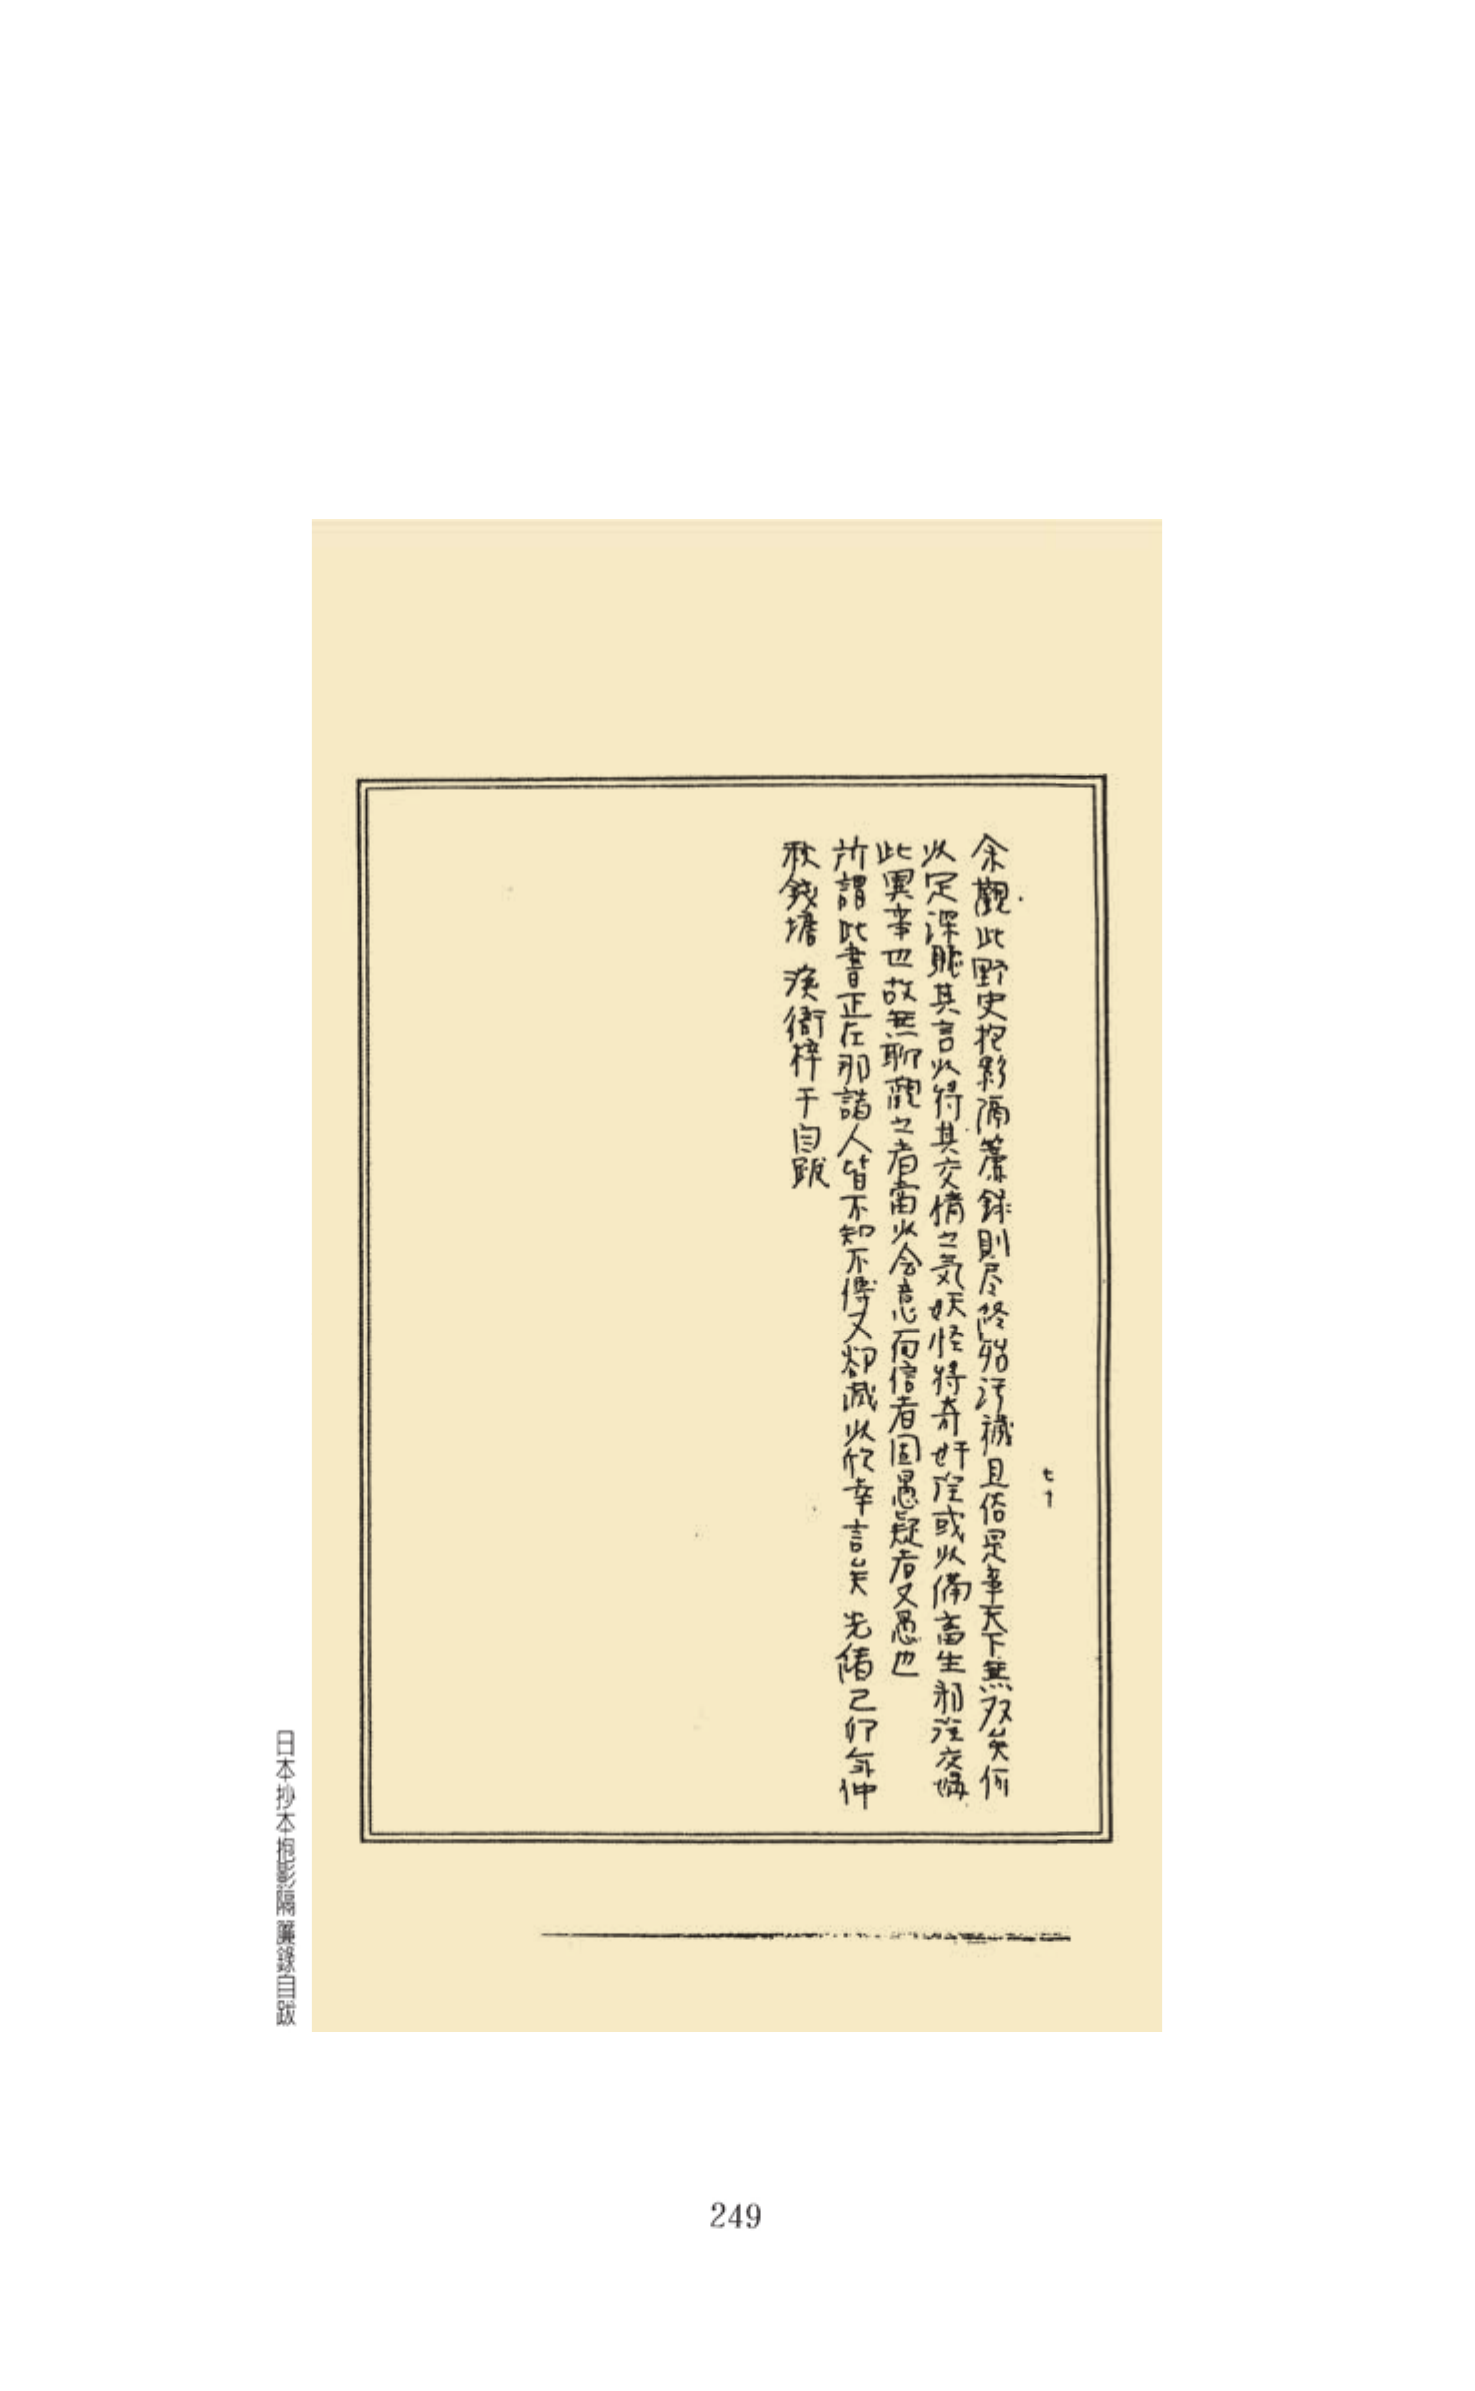 余觀此野史抱影隔簾錄則尽終始汚穢且俗是事天下無双矣何
以定深賍其言以符其交情之気妖怪特奇奸淫或以備畜生邪淫交媾
此異事也故無聊觀之者當以会意而信者固愚疑者又愚也
所謂此書正在那諸人皆不知不傳又却滅以欣幸言矣 光緒己卯年仲
秋錢塘 衙梓于自跋
日本抄本抱影隔簾錄自跋
249